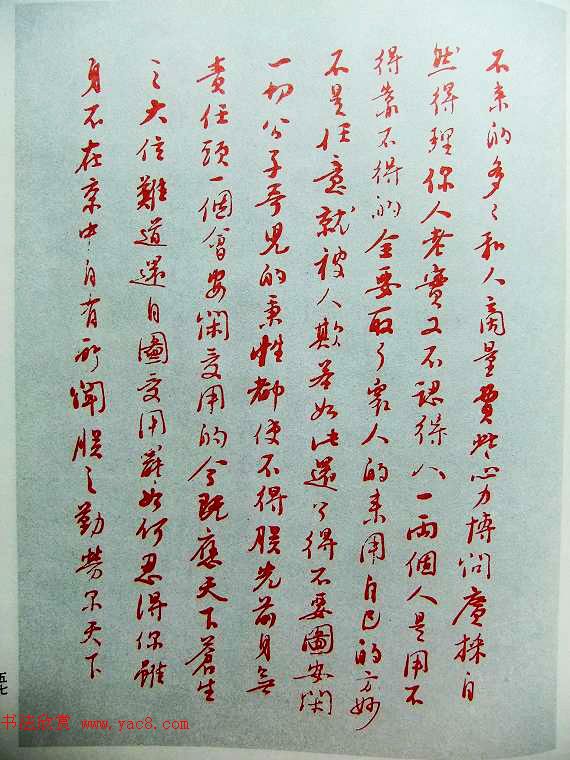 不来的多々和人商量费些心力博问广採自
然得理你人老實又不認得人一兩個人是用不
得靠不得的全要取了衆人的来用自己的方妙
不是任意就被人欺若如此還了得不要圖安閑
一切公子哥兒的秉性都使不得朕先前身無
責任頭一個會安閑受用的今既應天下蒼生
之大任難道還自圖受用辭如何忍得你雖
身不在京中自有所聞朕之勤勞不天下
五七
书法欣赏 www.yac8.com